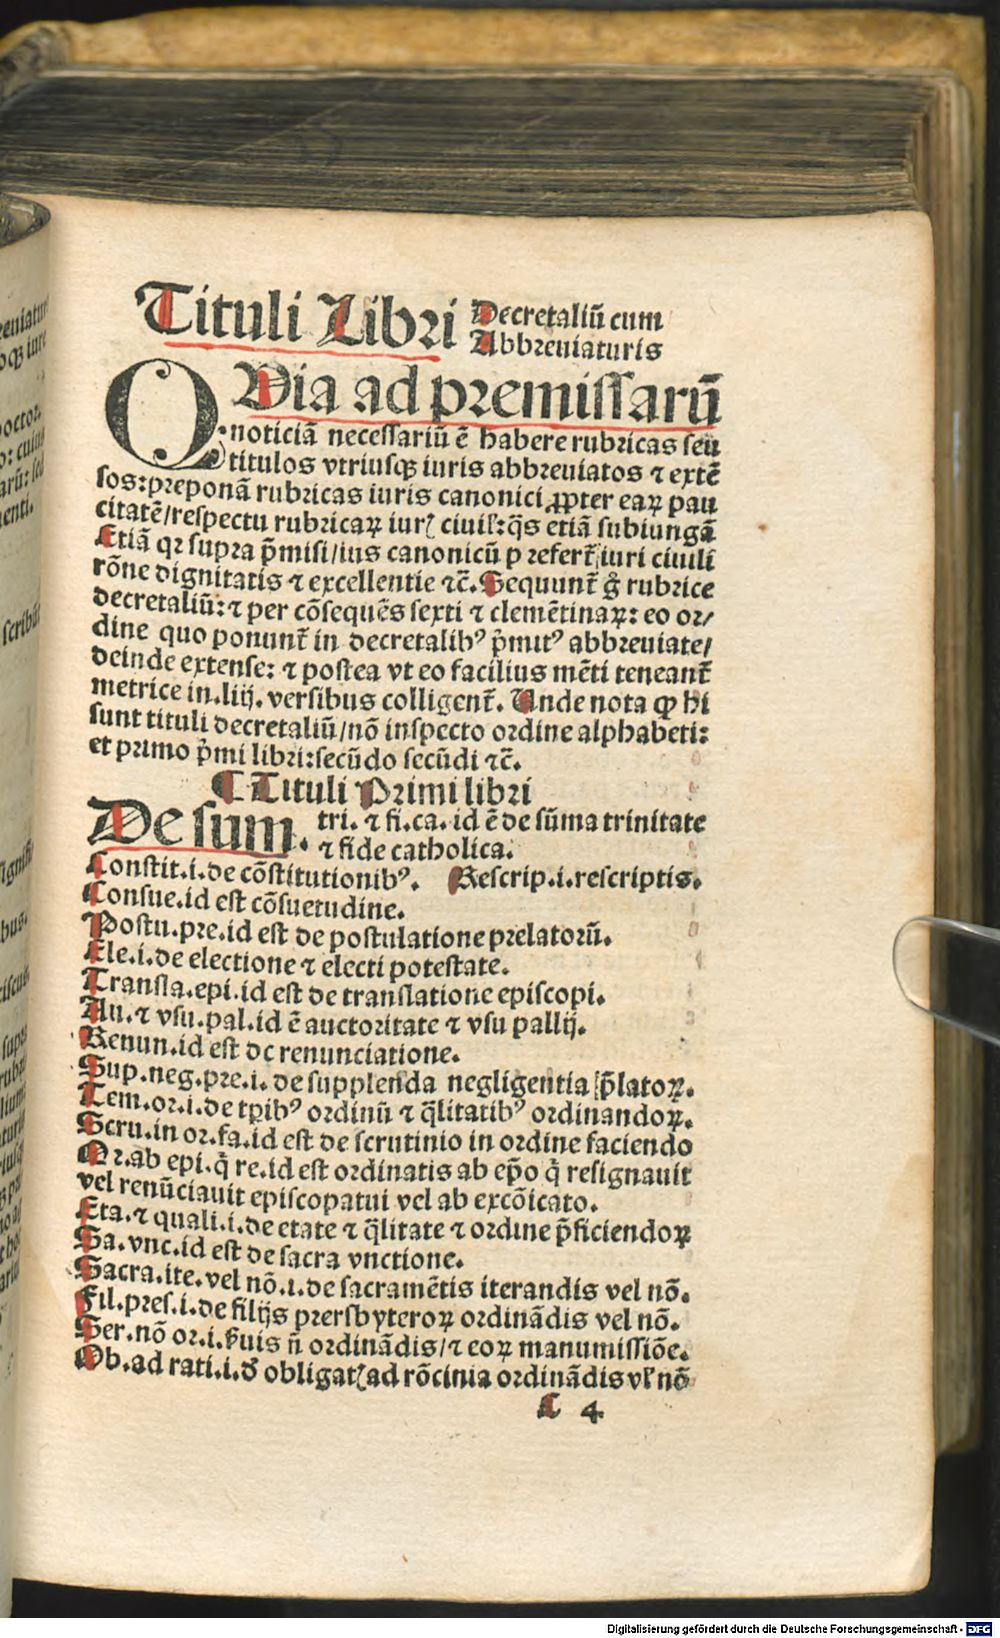 Tituli Libri Decretaliū cum
Abbreuiaturis
QUia ad premissarū
noticiā necessariū ē habere rubricas seu
titulos vtriusqꝫ iuris abbreuiatos ⁊ extē
sos: preponā rubricas iuris canonici ꝓpter earꝝ pau
citatē/respectu rubricaꝝ iurꝭ ciuil': q̄s etiā subiungā
Etiā qꝛ supra p̄misi/ius canonicū p refert̄ iuri ciuili
rōne dignitatis ⁊ excellentie ⁊c̄. Sequunt̄ g̊ rubrice
decretaliū: ⁊ per cōsequēs sexti ⁊ clemētinaꝝ: eo or/
dine quo ponunt̄ in decretalibꝰ p̄mitꝰ abbreuiate/
deinde extense: ⁊ postea vt eo facilius mēti teneant̄
metrice in .liij. versibus colligent̄. Unde nota ꝙ hi
sunt tituli decretaliū/nō inspecto ordine alphabeti:
et primo p̄mi libri: secūdo secūdi ⁊c̄.
¶ Tituli Primi libri
De sum. tri. ⁊ fi. ca. id ē de sūma trinitate
⁊ fide catholica.
Constit. i. de cōstitutionibꝰ. Rescrip. i. rescriptis.
Consue. id est cōsuetudine.
Postu. pre. id est de postulatione prelatorū.
Ele. i. de electione ⁊ electi potestate.
Transla. epi. id est de translatione episcopi.
Au. ⁊ vsu. pal. id ē auctoritate ⁊ vsu pallij.
Renun. id est de renunciatione.
Sup. neg. pre. i. de supplenda negligentia p̄latoꝝ.
Tem. or. i. de tꝑibꝰ ordinū ⁊ q̄litatibꝰ ordinandoꝝ.
Scru. in or. fa. id est de scrutinio in ordine faciendo
Or. ab epi. q̇ re. id est ordinatis ab ep̄o q̇ resignauit
vel renūciauit episcopatui vel ab excōicato.
Eta. ⁊ quali. i. de etate ⁊ q̄litate ⁊ ordine p̄ficiendoꝝ
Sa. vnc. id est de sacra vnctione.
Sacra. ite. vel nō. i. de sacramētis iterandis vel nō.
Fil. pres. i. de filijs prersbyteroꝝ ordinādis vel nō.
Ser. nō or. i. ẜuis n̄ ordinādis/⁊ eoꝝ manumissiōe.
Ob. ad rati. i. đ obligatꝭ ad rōcinia ordinādis vl' nō
¶ 4
Digitalisierung gefördert durch die Deutsche Forschungsgemeinschaft - DFG